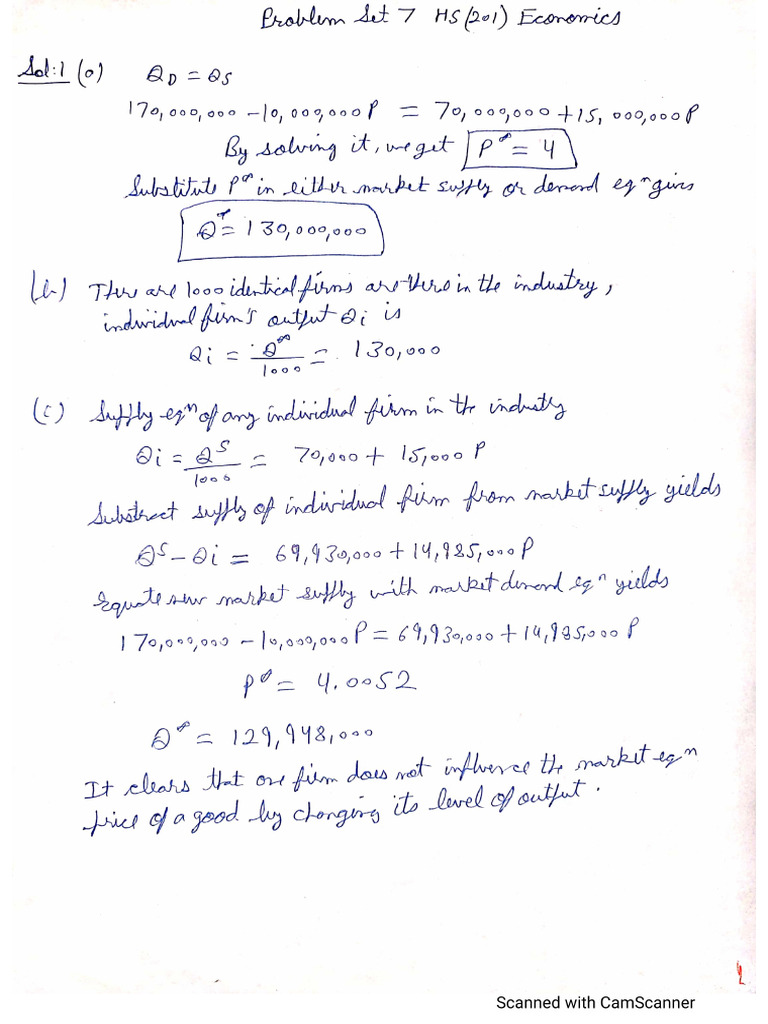 Problem Set 7 HS(201) Economics
Sol:1 (a) QD = QS
170,000,000 - 10,000,000P = 70,000,000 + 15,000,000P
By solving it, we get P* = 4
Substitute P* in either market supply or demand eqn givis
Q* = 130,000,000
(b) Thire are 1000 identical firms are there in the industry,
individual firm's output Qi is
Qi = Q*/1000 = 130,000
(c) Supply eqn of any individual firm in the industry
Qi = QS/1000 = 70,000 + 15,000 P
Substract supply of individual firm from market supply yields
QS - Qi = 69,930,000 + 14,985,000P
Equate new market supply with market demand eqn yields
170,000,000 - 10,000,000P = 69,930,000 + 14,985,000P
P* = 4.0052
Q* = 129,948,000
It clears that one firm does not influence the market eqn
price of a good by changing its level of output.
1
Scanned with CamScanner